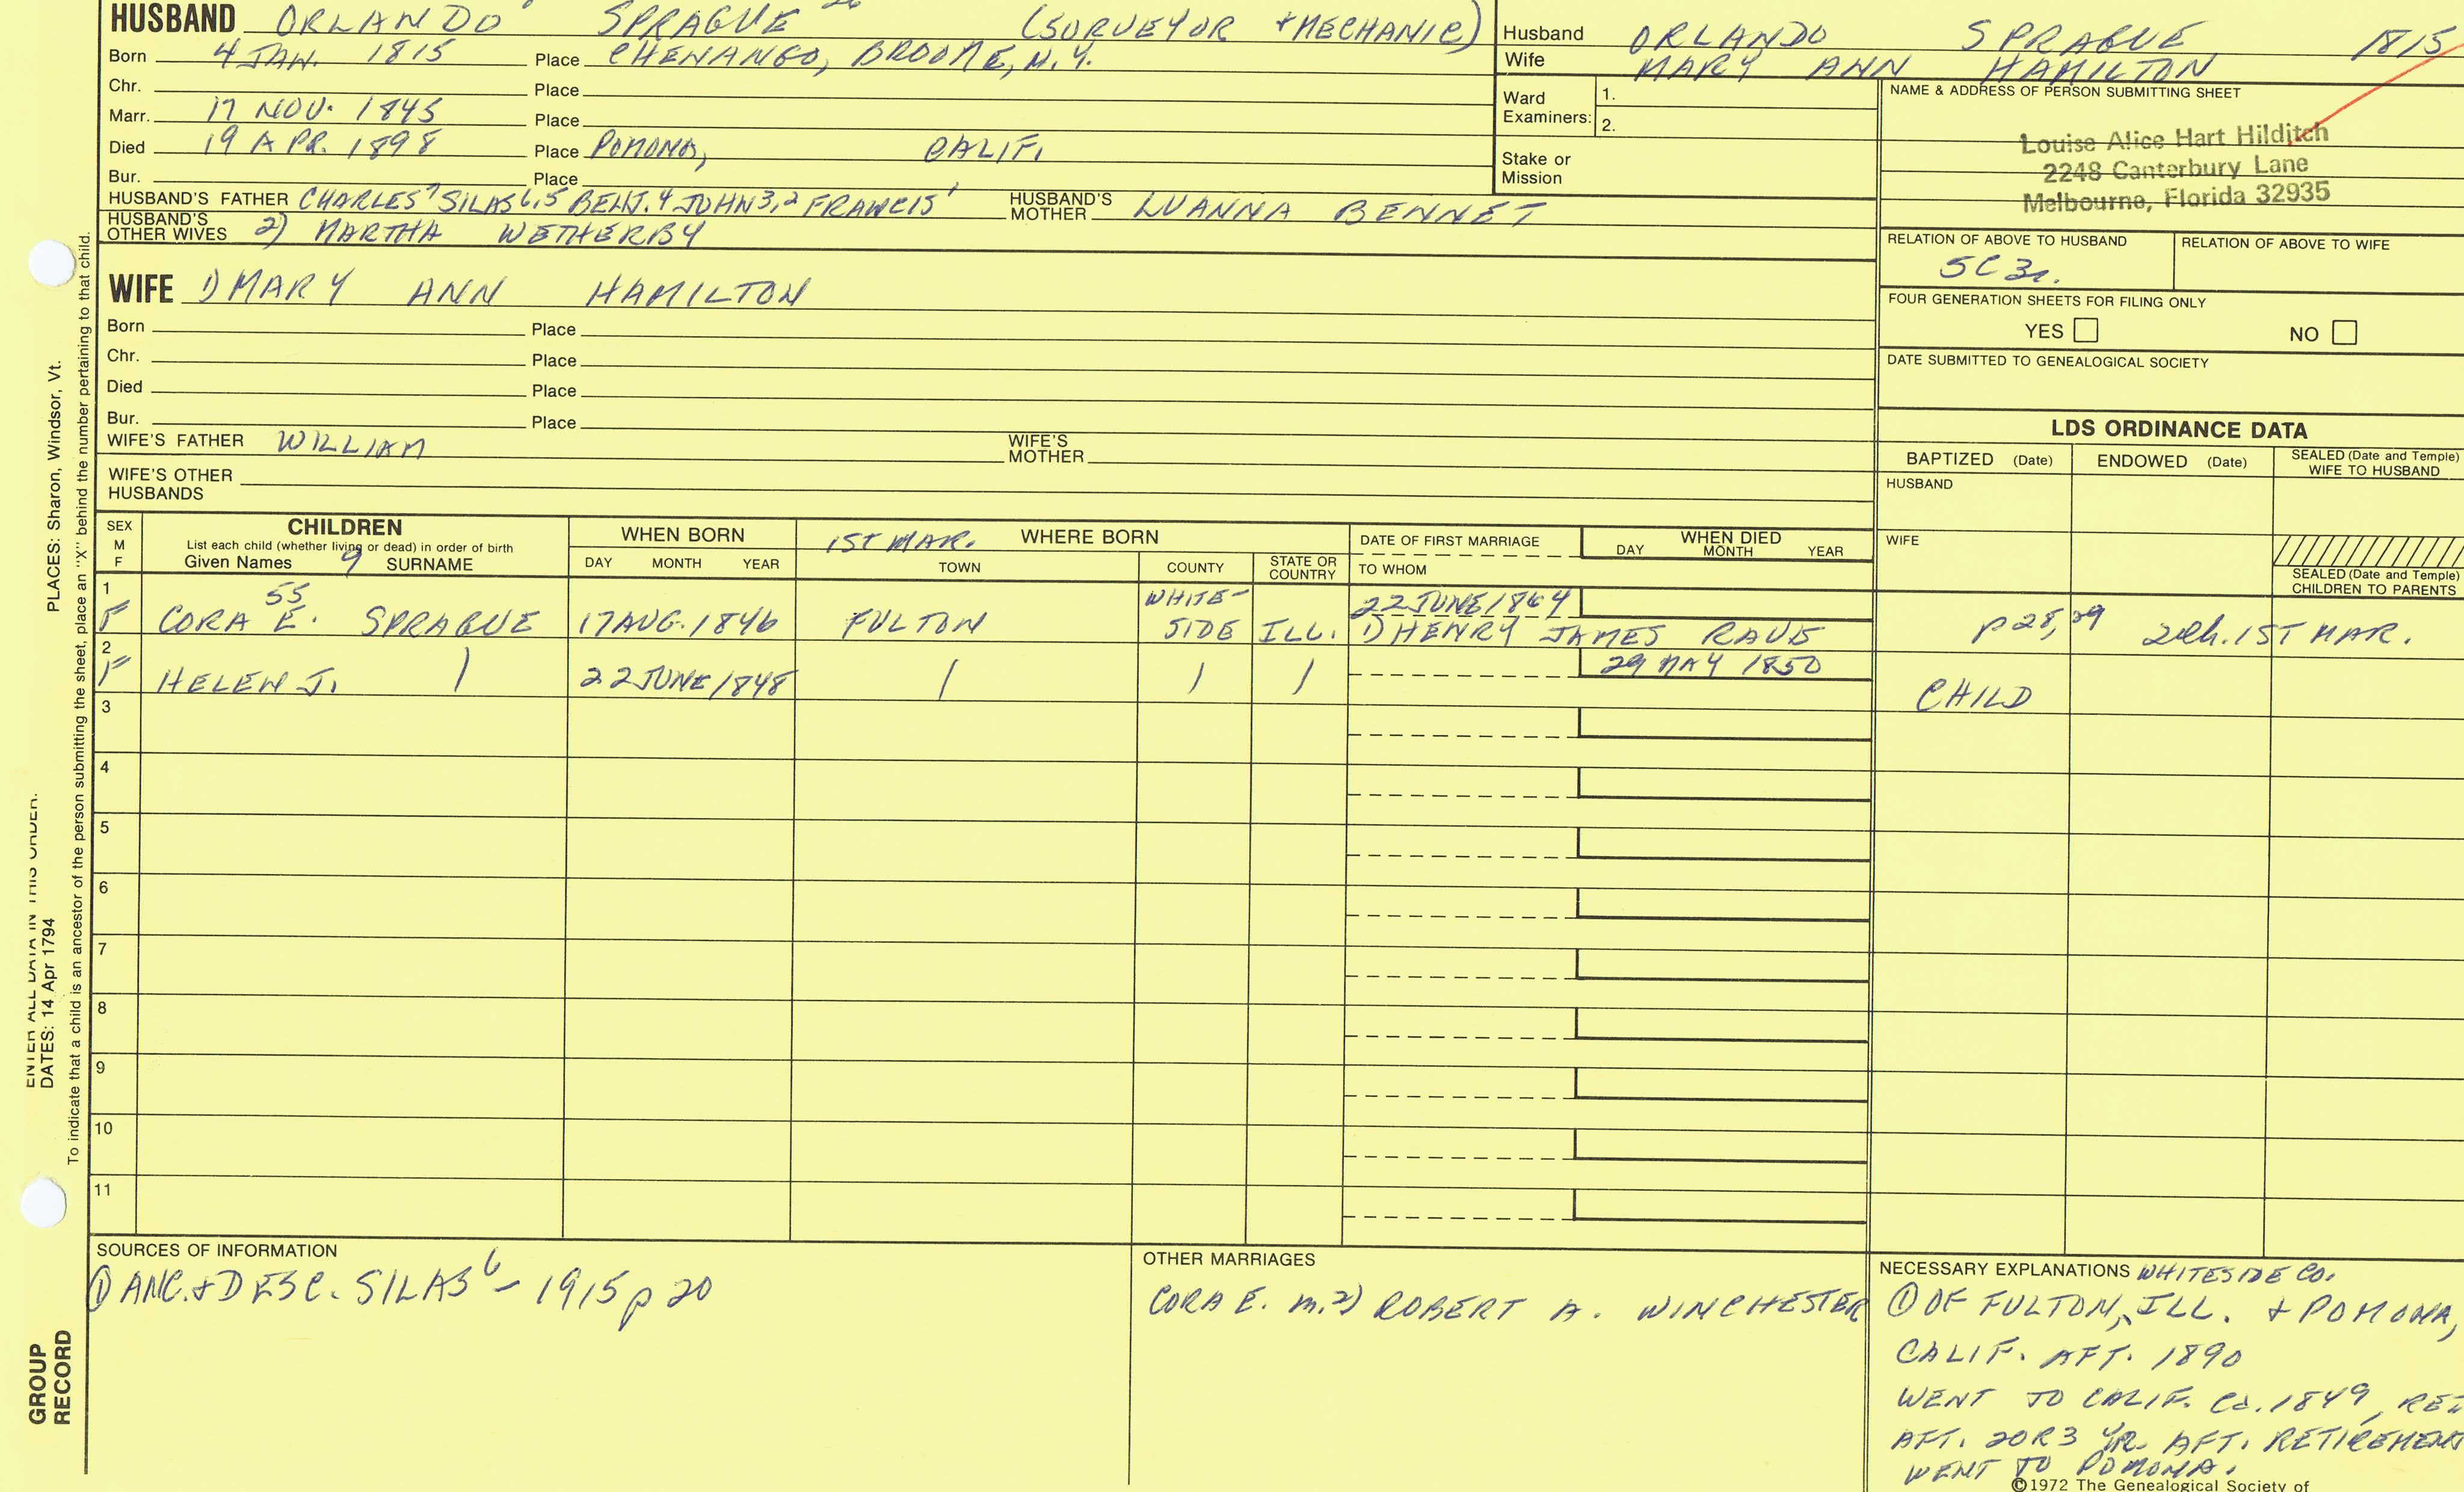 HUSBAND ORLANDO SPRAGUE (SURVEYOR + MECHANIC)
Born 4 JAN. 1815 Place CHENANGO, BROOME, N.Y.
Chr. Place
Marr. 17 NOV. 1845 Place
Died 19 APR. 1898 Place POMONA, CALIF.
Bur. Place
HUSBAND'S FATHER CHARLES7 SILAS6,5 BENJ.4 JOHN3,2 FRANCIS1 HUSBAND'S MOTHER LUANNA BENNET
HUSBAND'S OTHER WIVES 2) MARTHA WETHERBY
WIFE 1) MARY ANN HAMILTON
Born Place
Chr. Place
Died Place
Bur. Place
WIFE'S FATHER WILLIAM WIFE'S MOTHER
WIFE'S OTHER HUSBANDS
Husband ORLANDO SPRAGUE 1815
Wife MARY ANN HAMILTON
Ward Examiners: 1.
2.
Stake or Mission
NAME & ADDRESS OF PERSON SUBMITTING SHEET
Louise Alice Hart Hilditch
2248 Canterbury Lane
Melbourne, Florida 32935
RELATION OF ABOVE TO HUSBAND RELATION OF ABOVE TO WIFE
5C 3r.
FOUR GENERATION SHEETS FOR FILING ONLY
YES NO
DATE SUBMITTED TO GENEALOGICAL SOCIETY
LDS ORDINANCE DATA
BAPTIZED (Date) ENDOWED (Date) SEALED (Date and Temple) WIFE TO HUSBAND
HUSBAND
WIFE
SEALED (Date and Temple) CHILDREN TO PARENTS
SEX M F
CHILDREN
List each child (whether living or dead) in order of birth
Given Names 9 SURNAME
WHEN BORN
DAY MONTH YEAR
1ST MAR. WHERE BORN
TOWN COUNTY STATE OR COUNTRY
DATE OF FIRST MARRIAGE
TO WHOM
WHEN DIED
DAY MONTH YEAR
1 55 WHITE- 22 JUNE 1864
F CORA E. SPRAGUE 17 AUG. 1846 FULTON SIDE ILL. 1) HENRY JAMES p 28, 29 2ch. 1ST MAR.
2 29 MAY 1850
F HELEN J. 22 JUNE 1848 CHILD
3
4
5
6
7
8
9
10
11
SOURCES OF INFORMATION
① ANC. + DESC. SILAS6 - 1915 p 20
OTHER MARRIAGES
CORA E. m. 2) ROBERT A. WINCHESTER
NECESSARY EXPLANATIONS WHITESIDE CO.
① OF FULTON, ILL. + POMONA,
CALIF. AFT. 1890
WENT TO CALIF. Ca. 1849, RET
AFT. 2 OR 3 YR. AFT. RETIREMENT
WENT TO POMONA.
©1972 The Genealogical Society of
PLACES: Sharon, Windsor, Vt.
ENTER ALL DATA IN THIS ORDER:
DATES: 14 Apr 1794
To indicate that a child is an ancestor of the person submitting the sheet, place an "X" behind the number pertaining to that child.
GROUP
RECORD